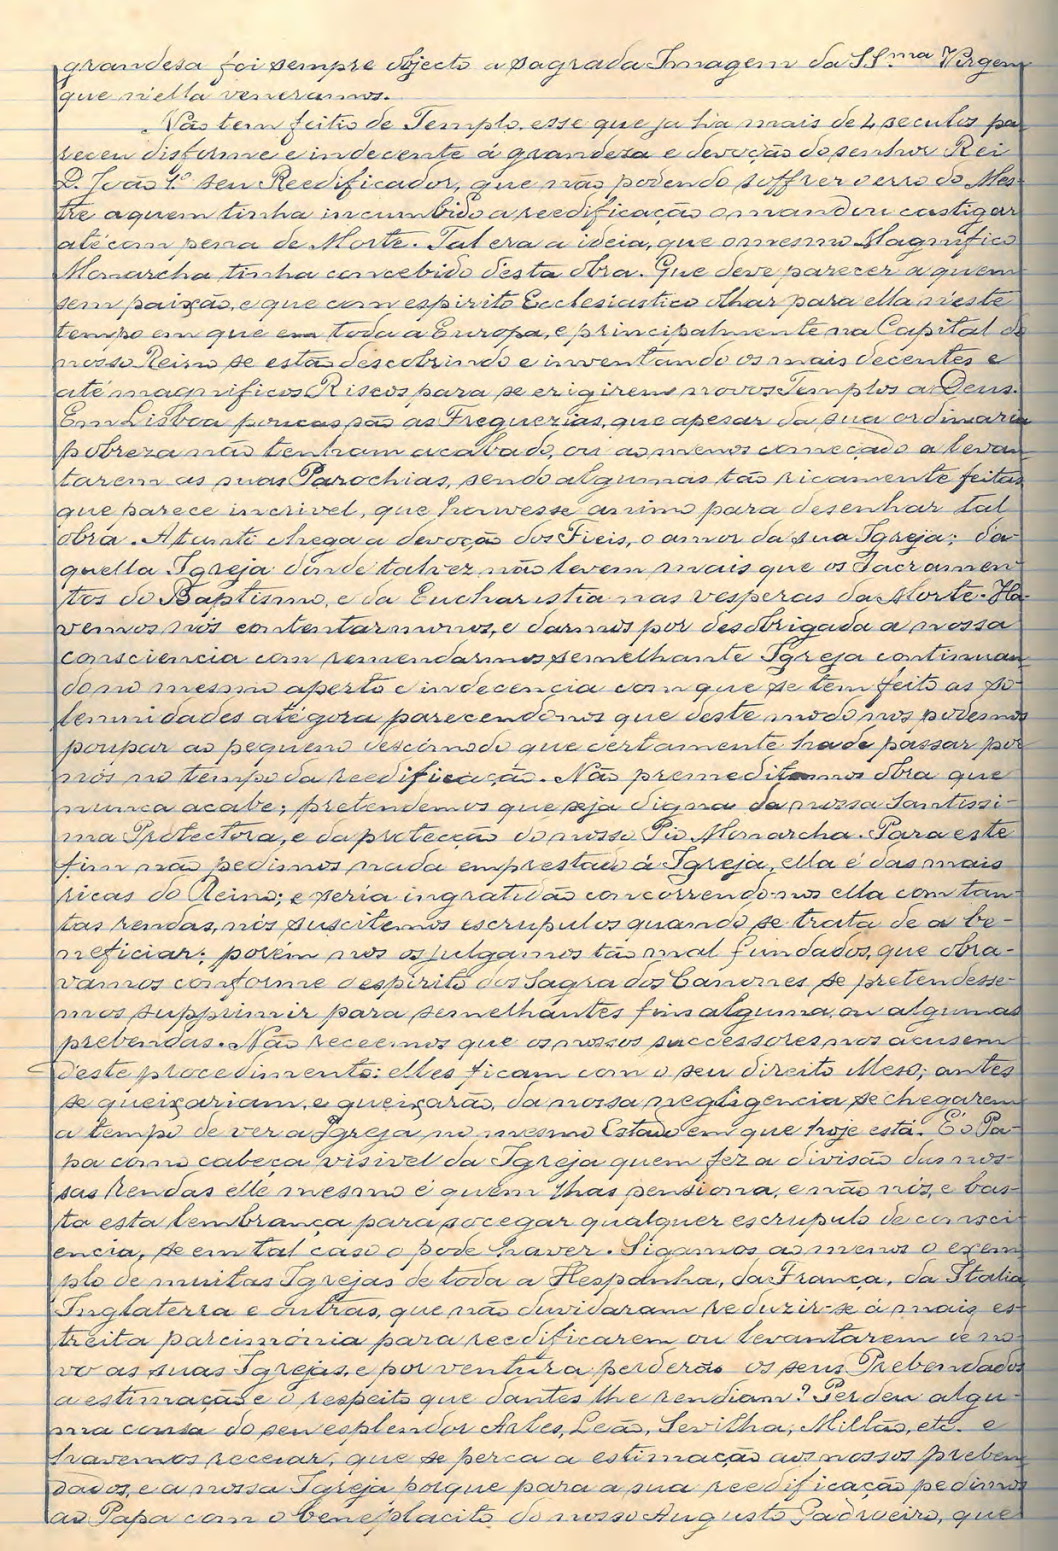 grandesa foi sempre objecto a sagrada Imagem da SS.ma Virgem
que n'ella veneramos.
Não tem feitio de Templo, esse que ja ha mais de 4 seculos pa-
receu disforme e indecente á grandesa e devoção do senhor Rei
D. João 1.º seu Reedificador, que não podendo soffrer o erro do Mes-
tre a quem tinha incumbido a reedificação o mandou castigar
até com pena de Morte. Tal era a ideia, que o mesmo Magnifico
Monarcha tinha concebido d'esta obra. Que deve parecer a quem
sem paixão, e que com espirito Ecclesiastico olhar para ella n'este
tempo em que em toda a Europa, e principalmente na Capital do
nosso Reino se estão descobrindo e inventando os mais decentes e
até magnificos Riscos para se erigirem novos Templos a Deus.
Em Lisboa poucas são as Freguezias, que apesar da sua ordinaria
pobreza não tenham acabado, ou ao menos começado a levan
tarem as suas Parochias, sendo algumas tão ricamente feitas
que parece incrivel, que houvesse animo para desenhar tal
obra. A tanto chega a devoção dos Fieis, o amor da sua Igreja; da-
quella Igreja donde talvez não levem mais que os Sacramen-
tos do Baptismo, e da Eucharistia nas vesperas da Morte. Ha-
vemos nós contentarmonos, e darmos por desobrigada a nossa
consciencia com remendarmos semelhante Igreja continuan
do no mesmo aperto e indecencia com que se tem feito as so-
lemnidades atégora parecendonos que deste modo nos podemos
poupar ao pequeno descómodo que certamente hade passar por
nós no tempo da reedificação. Não premeditamos obra que
nunca acabe; pretendemos que seja digna da nossa Santissi-
ma Protectora, e da protecção do nosso Pio Monarcha. Para este
fim não pedimos nada emprestado á Igreja, ella é das mais
ricas do Reino; e seria ingratidão concorrendo-nos ella com tan-
tas rendas, nós suscitemos escrupulos quando se trata de a be-
neficiar; porém nos os julgamos tão mal fundados, que obra-
vamos conforme o espirito dos Sagrados Canones se pretendesse-
mos supprimir para semelhantes fins alguma, ou algumas
prebendas. Não receemos que os nossos successores nos acusem
d'este procedimento: elles ficam com o seu direito illeso; antes
se queixariam, e queixarão, da nossa negligencia se chegarem
a tempo de ver a Igreja no mesmo Estado em que hoje está. É o Pa-
pa como cabeça visivel da Igreja quem fez a divisão das nos-
sas Rendas elle mesmo é quem lhas pensiona, e não nós, e bas-
ta esta lembrança para socegar qualquer escrupulo de consci-
encia, se em tal caso o pode haver. Sigamos ao menos o exem
plo de muitas Igrejas de toda a Hespanha, da França, da Italia
Inglaterra e outras, que não duvidaram reduzir-se á mais es-
treita parcimónia para reedificarem ou levantarem de no-
vo as suas Igrejas, e por ventura perderão os seus Prebendados
a estimação e o respeito que dantes lhe rendiam? Perdeu algu-
ma cousa do seu esplendor Arles, Leão, Sevilha, Millão, etc. e
havemos recear, que se perca a estimação aos nossos preben
dados, e a nossa Igreja porque para a sua reedificação pedimos
ao Papa com o beneplacito do nosso Augusto Padroeiro, que